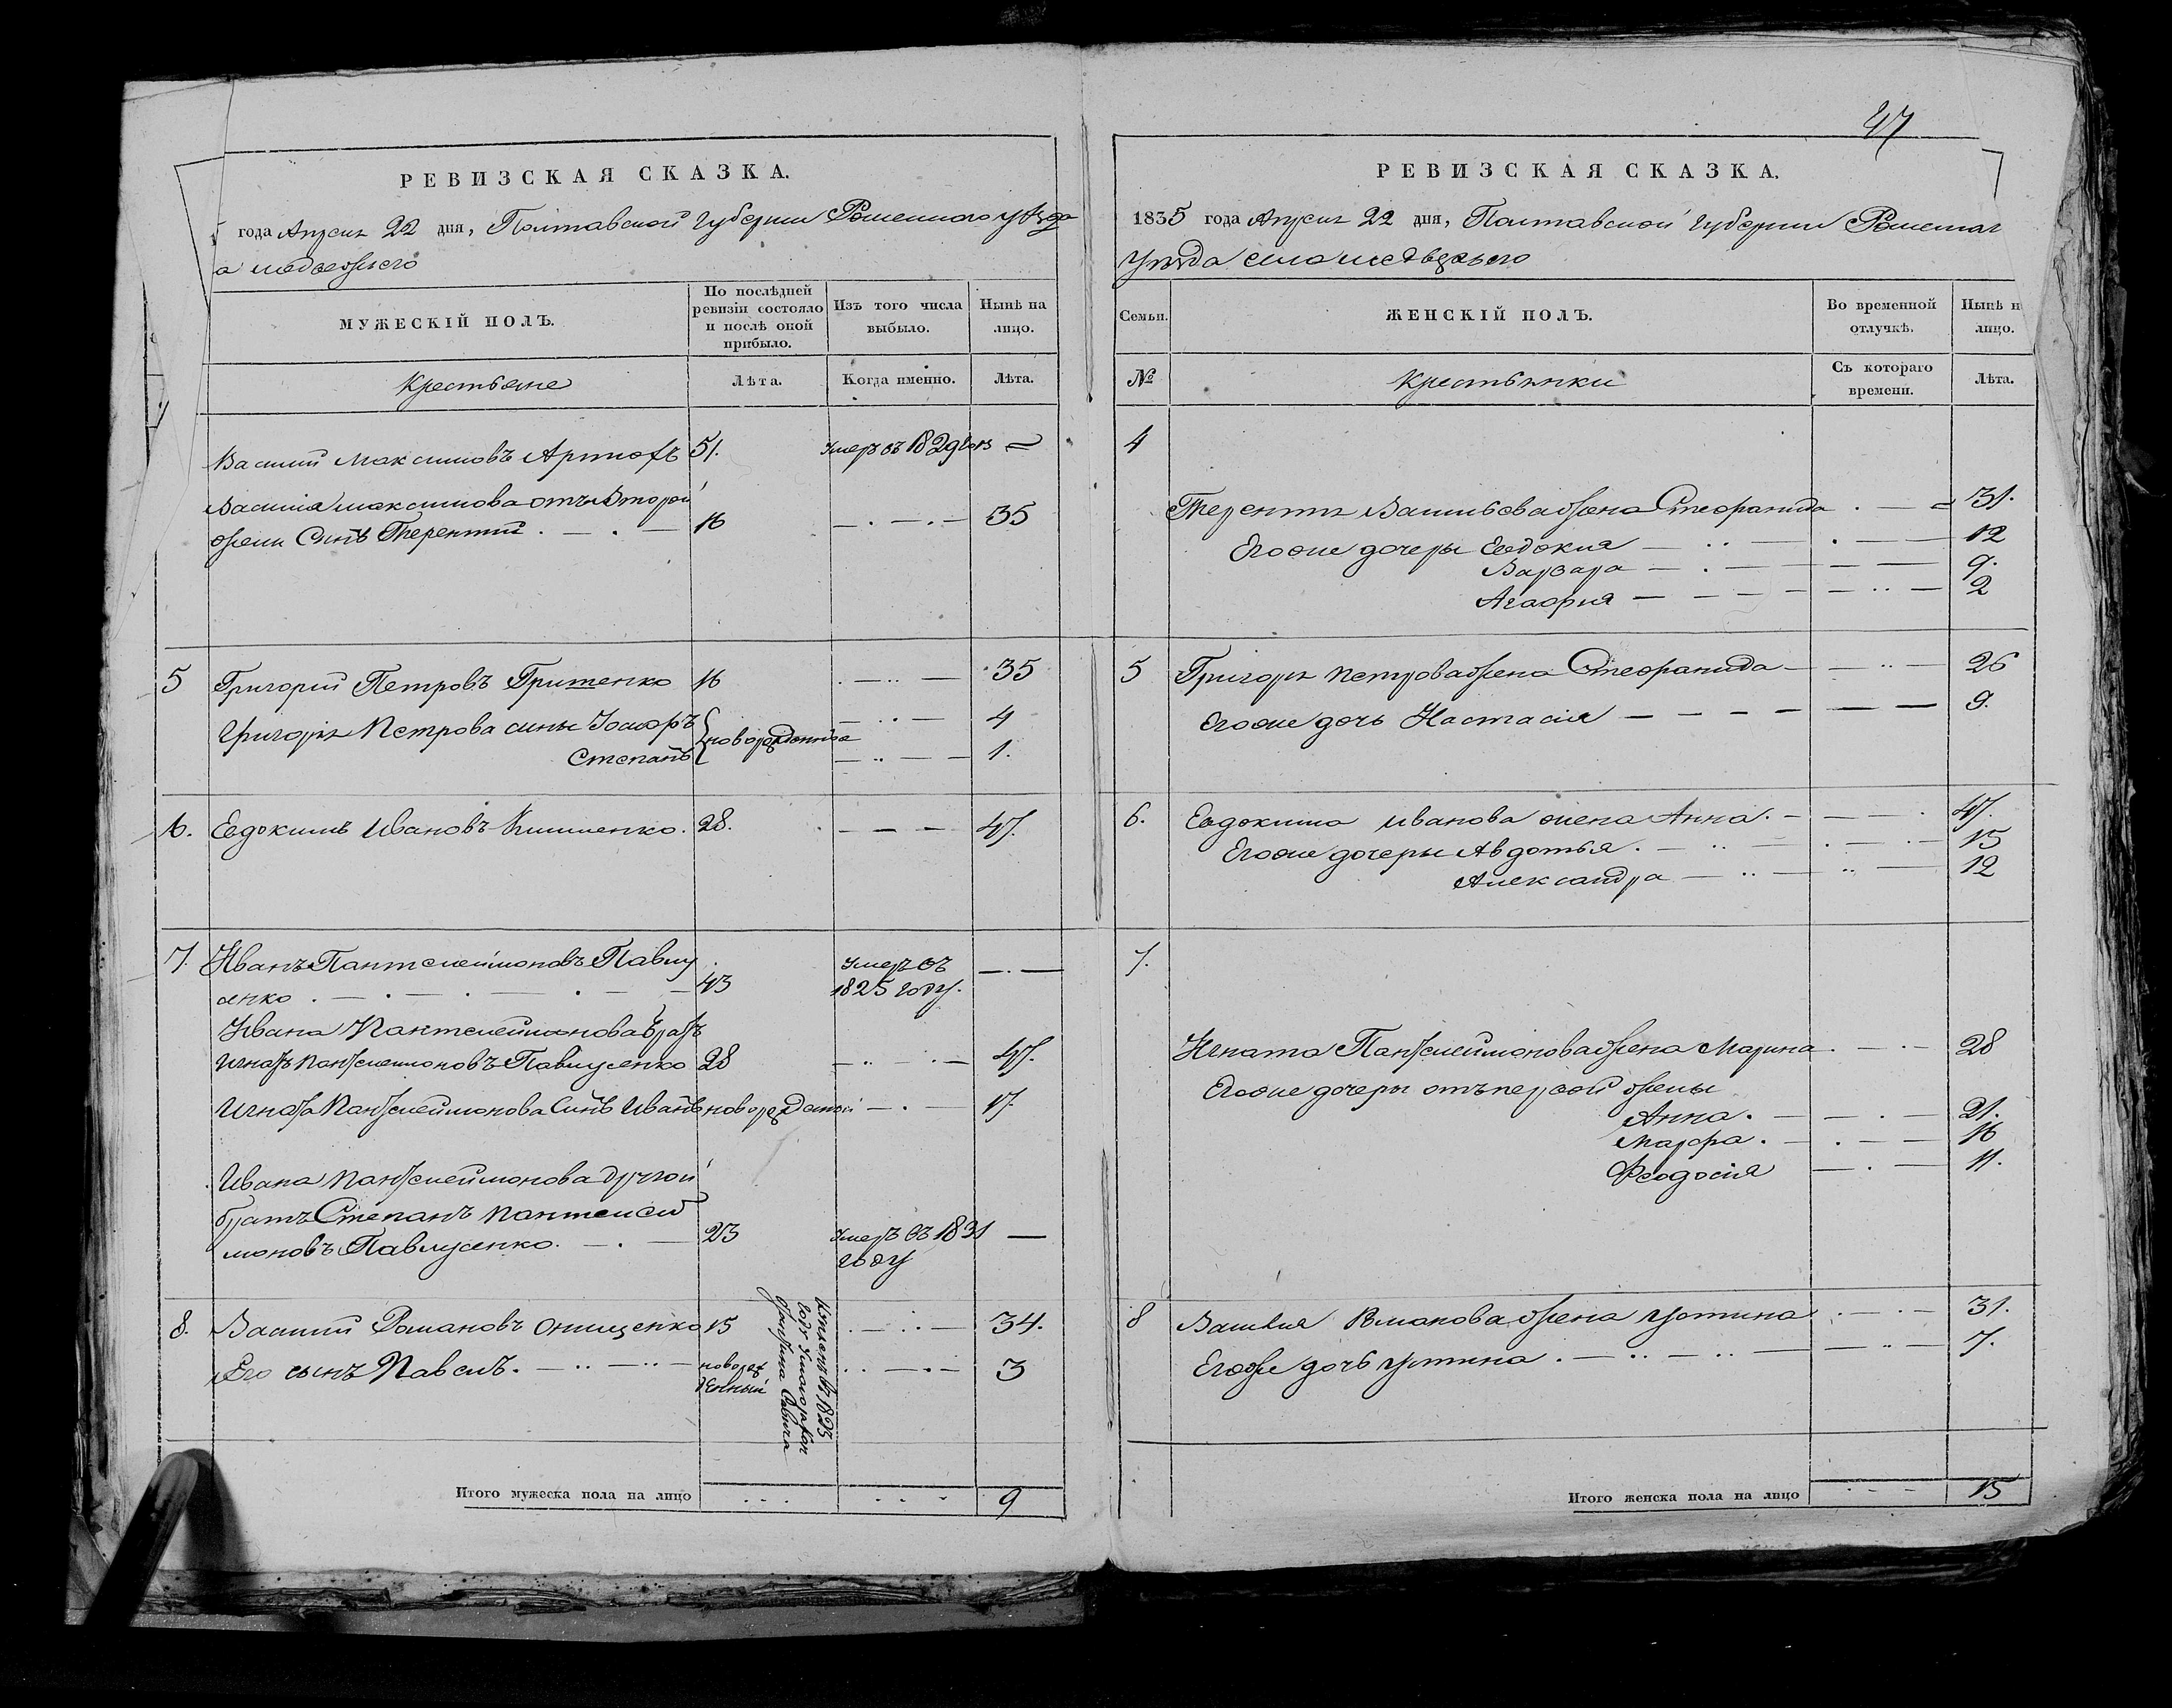 47
РЕВИЗСКАЯ СКАЗКА.
года Апреля 22 дня, Полтавской Губернии Роменского уѣзда
а медвежьего
МУЖЕСКІЙ ПОЛЪ.
По послѣдней ревизіи состояло и послѣ оной прибыло.
Изъ того числа выбыло.
Нынѣ на лицо.
Крестьяне
Лѣта.
Когда именно.
Лѣта.
Василий Максимовъ 51. умеръ въ 1829
Василия максимова отъ второй
жени Синъ Терентий 16 35
5 Григорий Петровъ Гриценко 16 35
Григория Петрова сины 4
Степанъ новорожденные 1.
6. Евдокимъ Ивановъ 28. 47.
7. Иванъ Пантелеймоновъ Павлу
енко 43 умеръ въ 1825 году.
Ивана Пантелеймонова братъ
Игнатъ Пантелеймоновъ Павлусенко 28 47.
Игната Пантелеймонова Синъ Иванъ новорожденый 17.
Ивана Пантелеймонова другой
братъ Степанъ Пантелей
моновъ Павлусенко. 23 умеръ въ 1831 году
8. Василий Романовъ Онищенко 15 34.
Его сынъ Павелъ. новорожденный 3
1823
Итого мужеска пола на лицо 9
РЕВИЗСКАЯ СКАЗКА.
1835 года Апреля 22 дня, Полтавской Губернии
уѣзда села медвежьего
Семьи.
ЖЕНСКІЙ ПОЛЪ.
Во временной отлучкѣ.
Нынѣ н лицо.
№
Крестьянки
Съ котораго времени.
Лѣта.
4
Терентия Васильева жена Стефанида 31.
Егоже дочеры Евдокия 12
Варвара 9.
Агафия 2
5 Григория Петрова жена Стефанида 26
Егоже дочь Настасия 9.
6. Евдокима иванова жена Анна. 47.
Егоже дочеры Авдотья. 15
Александра 12
7.
Игната Пантелеймонова жена Марина 28
Егоже дочеры отъ первой жены
Анна. 21.
Марфа. 16
Феодосия 11.
8 Василия Романова жена Устина 31.
Егоже дочь Устина. 7.
Итого женска пола на лицо 15